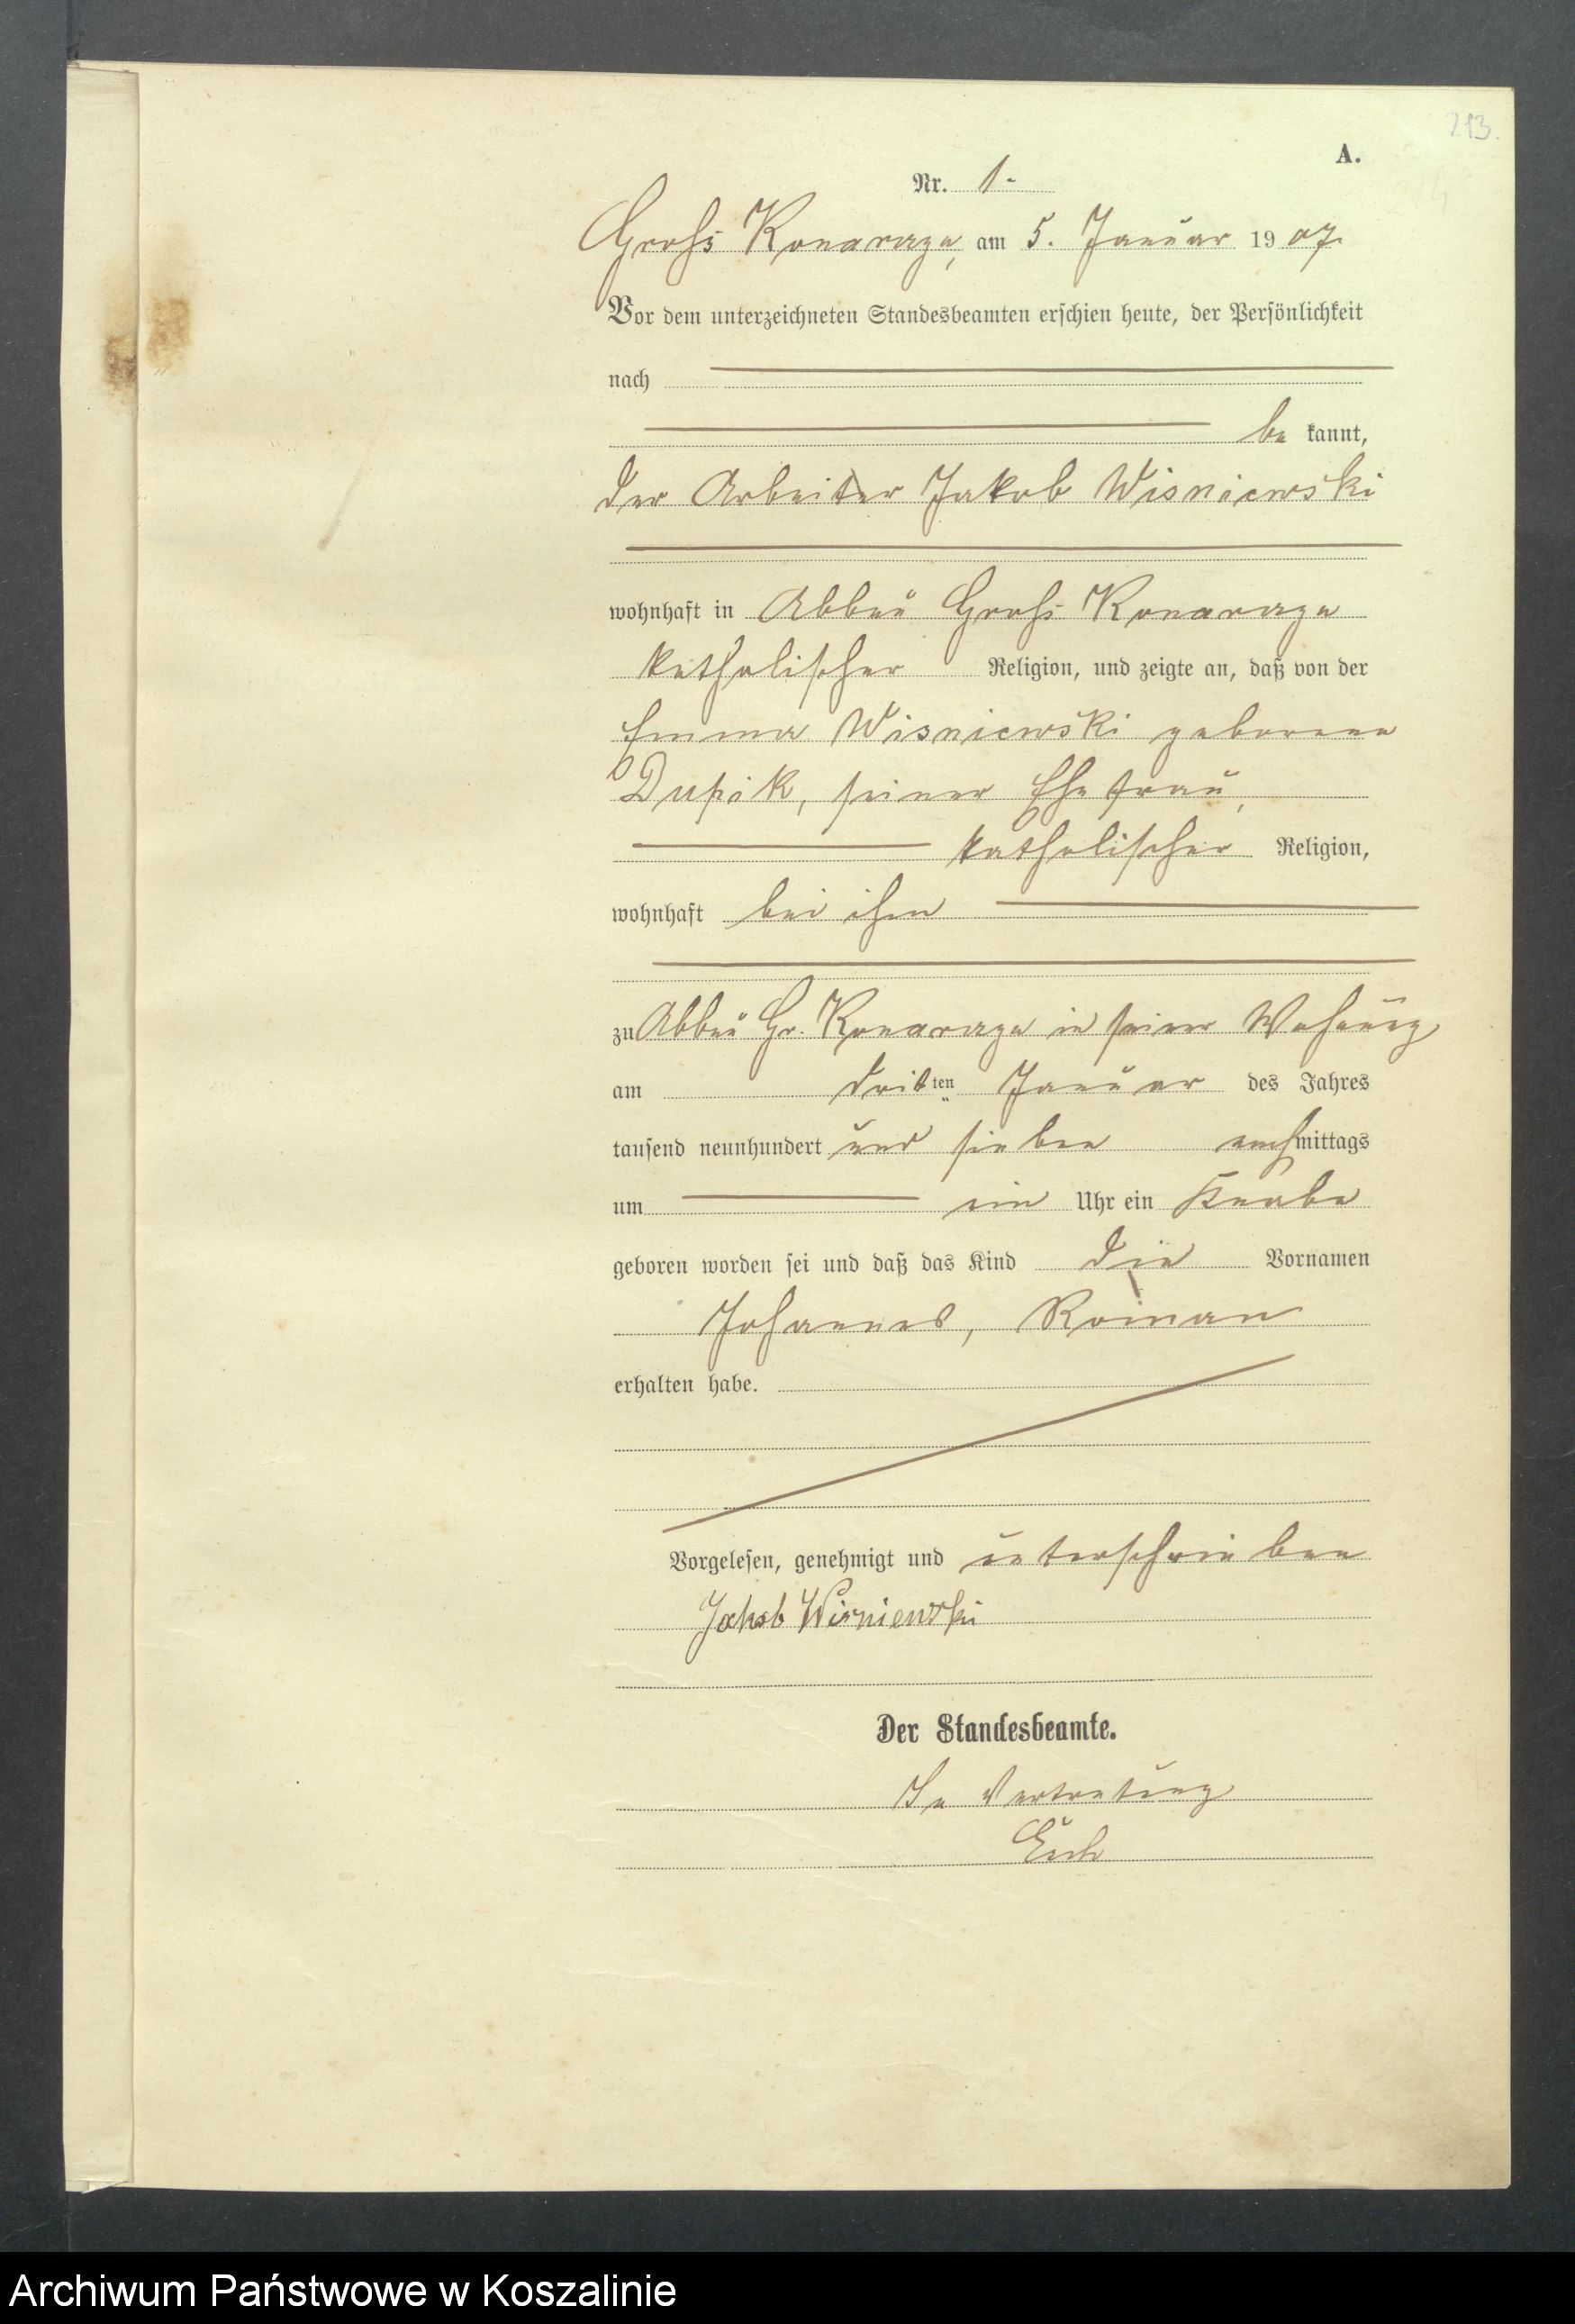 213.
A.
Nr. 1.
Groß Konarzyn, am 5. Januar 1907.
Vor dem unterzeichneten Standesbeamten erschien heute, der Persönlichkeit
nach
be kannt,
der Arbeiter Jakob Wisniewski
wohnhaft in Abbau Groß Konarzyn
katholischer Religion, und zeigte an, daß von der
Emma Wisniewski geborene
seiner Ehefrau,
katholischer Religion,
wohnhaft bei ihm
zu Abbau Gr. Konarzyn in seiner Wohnung
am dritten Januar des Jahres
tausend neunhundert und sieben nachmittags
um ein Uhr ein Knabe
geboren worden sei und daß das Kind die Vornamen
Johannes, Roman
erhalten habe.
Vorgelesen, genehmigt und unterschrieben
Jakob Wisniewski
Der Standesbeamte.
In Vertretung
Archiwum Państwowe w Koszalinie